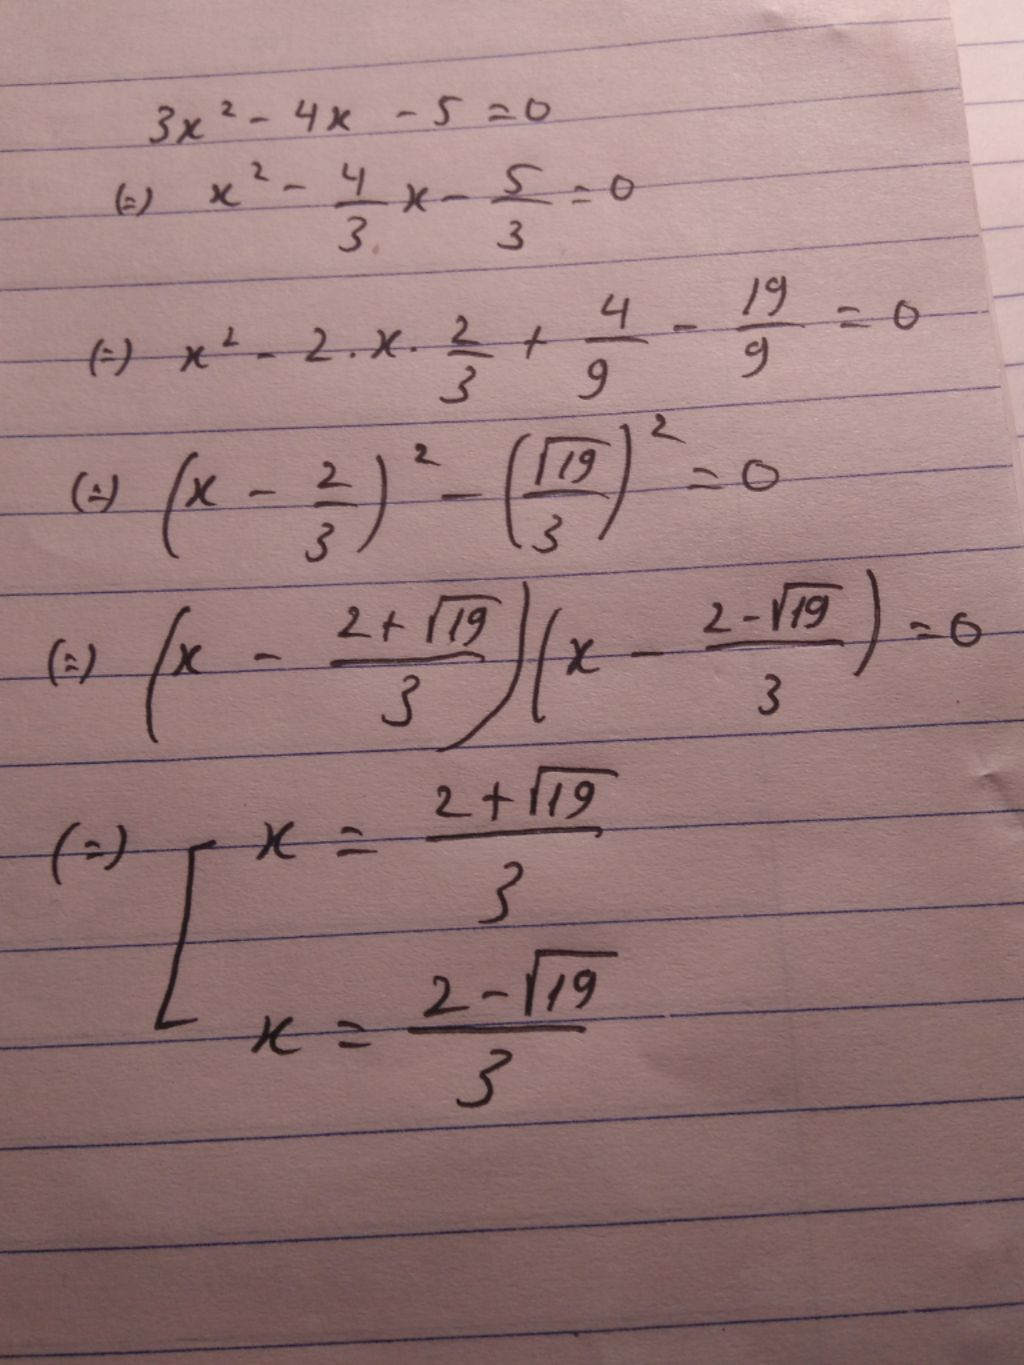 3x² - 4x - 5 = 0
(=) x² - 4/3 x - 5/3 = 0
(=) x² - 2.x. 2/3 + 4/9 - 19/9 = 0
(=) (x - 2/3)² - (√19/3)² = 0
(=) (x - (2+√19)/3)(x - (2-√19)/3) = 0
(=) [ x = (2+√19)/3
x = (2-√19)/3